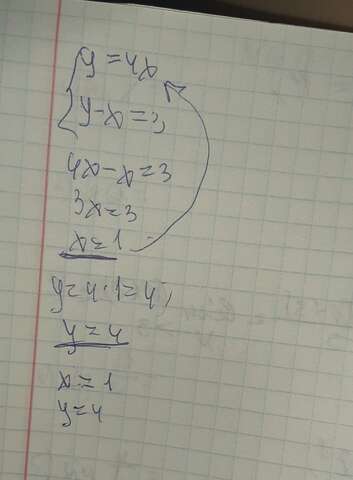 y = 4x
y - x = 3,
4x - x = 3
3x = 3
x = 1
y = 4 · 1 = 4,
y = 4
x = 1
y = 4